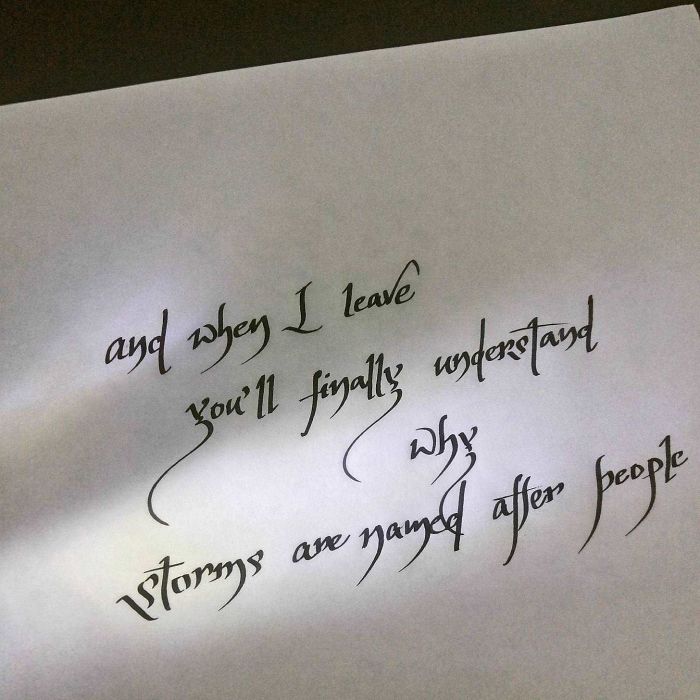 and when I leave
you'll finally understand
why
storms are named after people